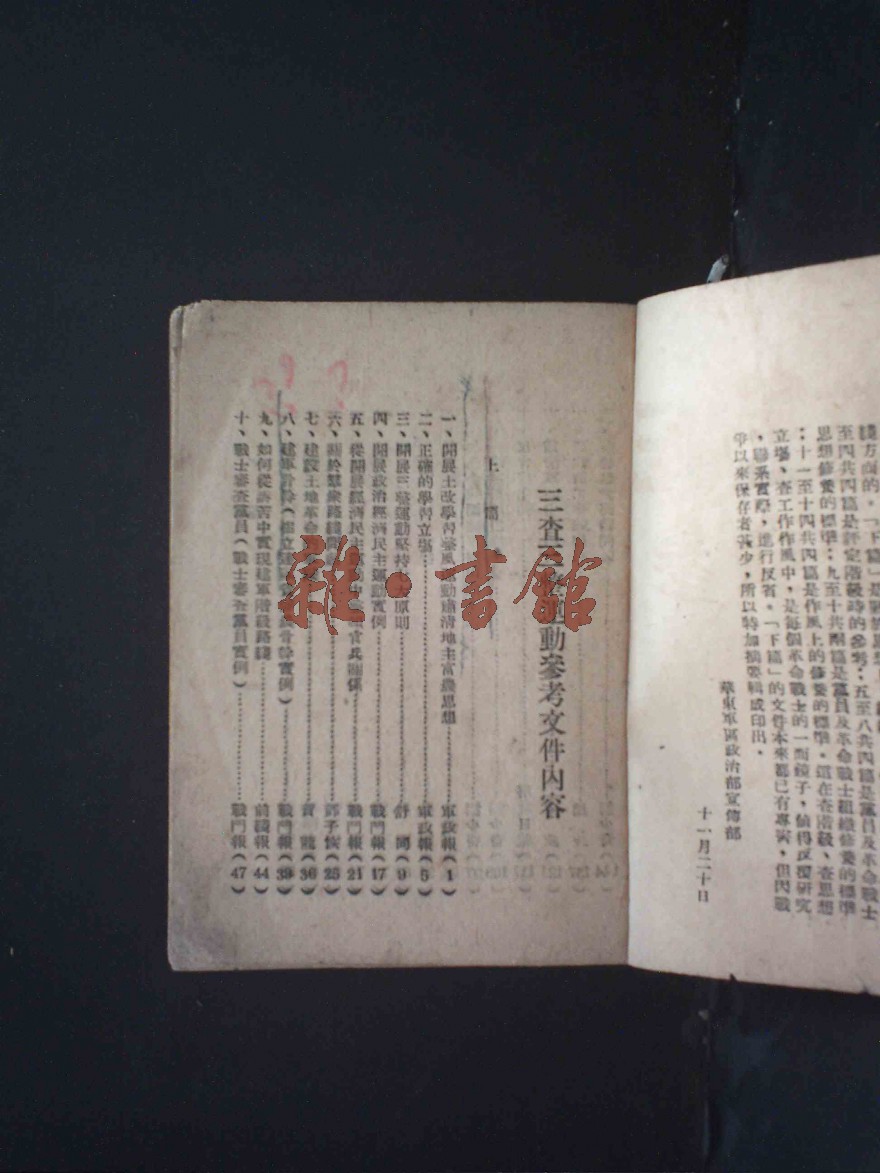 綫方面的。「下篇」是
至四共四篇是評定階級時的參考;五至八共四篇是黨員及革命戰士
思想修養的標準;九至十共兩篇是黨員及革命戰士組織修養的標準
;十一至十四共四篇是作風上的修養的標準。這在查階級、查思想
立場、查工作作風中,是每個革命戰士的一面鏡子,值得反覆研究
,聯系實際,進行反省。「下篇」的文件本來都已有專頁,但因戰
爭以來保存者甚少,所以特加摘要輯成印出。
華東軍區政治部宣傳部
十一月二十日
三查 運動參考文件內容
上篇
一、開展土改學習 肅清地主富農思想 軍政報(1)
二、正確的學習立場 軍政報(5)
三、開展三整運動堅持 大原則 舒同(9)
四、開展政治經濟民主運動實例 戰鬥報(17)
五、從開展經濟民主 中 官兵關係 戰鬥報(21)
六、關於羣衆路綫 鄧子恢(25)
七、建設土地革命 賀龍(36)
八、建軍骨幹( 骨幹實例) 戰鬥報(39)
九、如何從訴苦中實現建軍階級路綫 前綫報(44)
十、戰士審查黨員(戰士審查黨員實例) 戰鬥報(47)
雜·書館